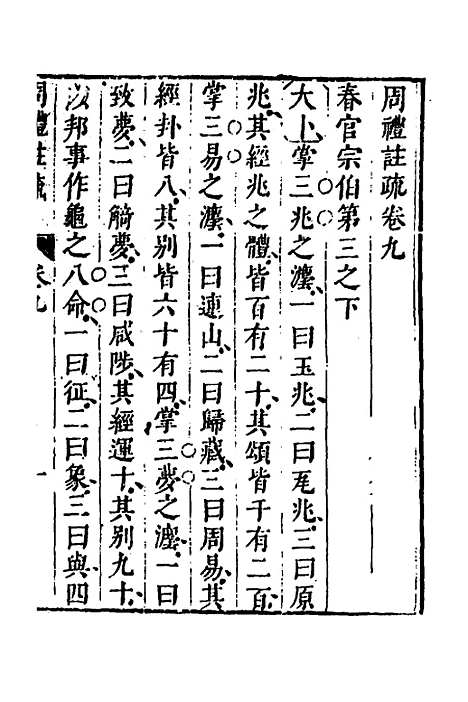 周禮註疏卷九
春官宗伯第三之下
大卜掌三兆之灋一曰玉兆二曰瓦兆三曰原
兆其經兆之體皆百有二十其頌皆千有二百
掌三易之灋一曰連山二曰歸藏三曰周易其
經卦皆八其别皆六十有四掌三夢之灋一曰
致夢二曰觭夢三曰咸陟其經運十其别九十
以邦事作龜之八命一曰征二曰象三曰與四
周禮註疏 卷九 一